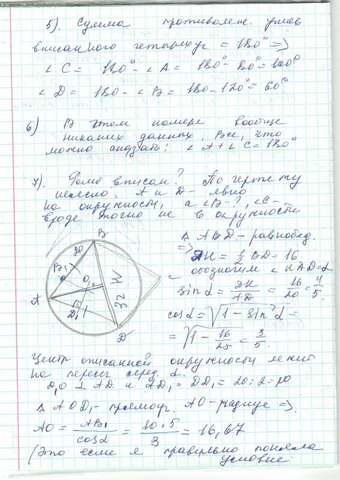 5). Сумма противолеж. углов
вписанного четырехуг = 180° =>
∠C = 180° - ∠A = 180° - 80° = 100°
∠D = 180 - ∠B = 180 - 120° = 60°
6) В этом номере вообще
никаких данных. Все, что
можно сказать: ∠A + ∠C = 180°
7). Ромб вписан? По чертежу
неясно. A и D - явно
на окружности, а ∠B - ?, ∠C -
вроде точно не в окружности
Δ ABD - равнобед.
=> DK = 1/2 BD = 16
обозначим ∠KAD = α
sin α = DK/AD = 16/20 = 4/5
cos α = √1 - sin²α =
= √1 - 16/25 = 3/5.
B
20
B₁
O
K
32
A
D₁
D
Центр описанной окружности лежит
на пересеч. серед. ⊥
D₁O ⊥ AD и AD₁ = DD₁ = 20:2 = 10
Δ AOD₁ - прямоуг. AO - радиус =>
AO = AB₁/cos α = 10·5/3 = 16,67
(Это если я правильно поняла
условие